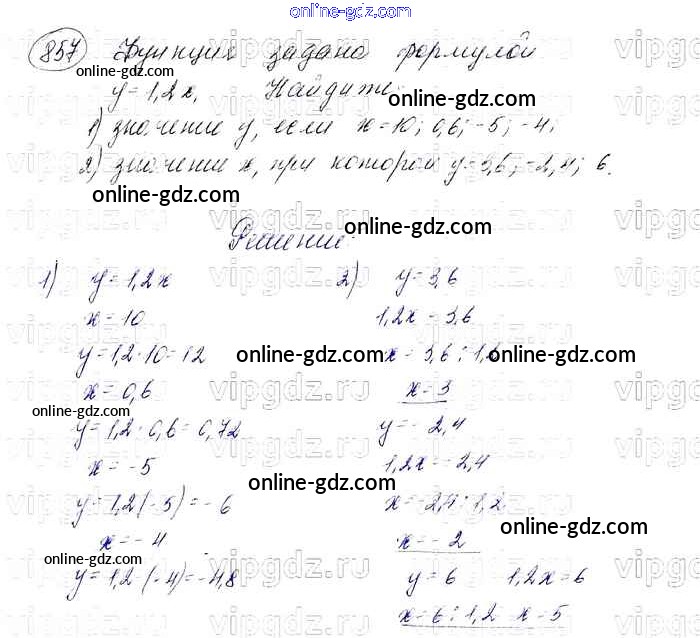 online-gdz.com
857 Функция задана формулой
y = 1,2x. Найдите
1) значение y, если x = 10; 0,6; -5; -4;
2) значение x, при котором y = 3,6; -2,4; 6.
Решение.
1) y = 1,2x
x = 10
y = 1,2 · 10 = 12
x = 0,6
y = 1,2 · 0,6 = 0,72
x = -5
y = 1,2 (-5) = -6
x = -4
y = 1,2 (-4) = -4,8
2) y = 3,6
1,2x = 3,6
x = 3,6 :
x = 3
y = -2,4
1,2x = -2,4
x = -2,4 : 1,2
x = -2
y = 6 1,2x = 6
x = 6 : 1,2 x = 5
online-gdz.com
online-gdz.com
online-gdz.com
online-gdz.com
online-gdz.com
online-gdz.com
online-gdz.com
online-gdz.com
online-gdz.com
online-gdz.com
online-gdz.com